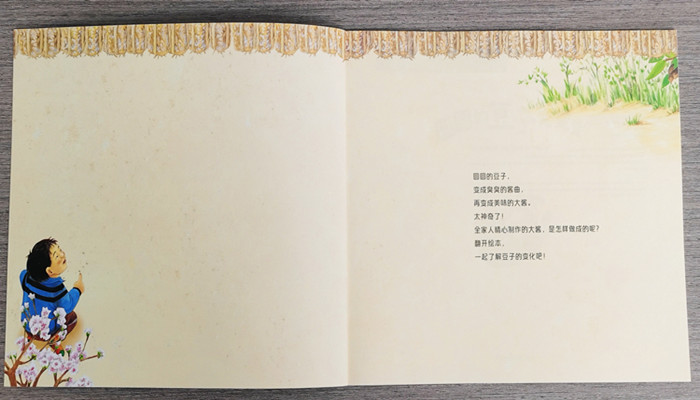 圆圆的豆子，
变成臭臭的酱曲，
再变成美味的大酱。
太神奇了！
全家人精心制作的大酱，是怎样做成的呢？
翻开绘本，
一起了解豆子的变化吧！